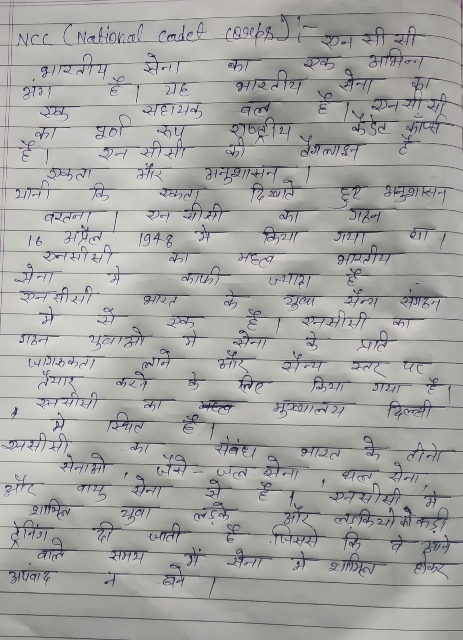 NCC (National Cadet Coreps) :- एन सी सी
भारतीय सेना का एक अभिन्न
अंग है। यह भारतीय सेना का
एक सहायक बल है। एन सी सी
का पूर्ण रूप राष्ट्रीय कैडेट कॉर्प्स
है। एन सीसी की टैगलाइन है
एकता और अनुशासन।
यानी कि एकता दिखाते हुए अनुशासन
बरतना। एन सीसी का गठन
16 अप्रैल 1948 मे किया गया था।
एनसीसी का महत्व भारतीय
सेना मे काफी ज्यादा है
एनसीसी भारत के युवा सैन्य संगठन
मे से एक है। एनसीसी का
गठन युवाओ मे सेना के प्रति
जागरुकता लाने और सैन्य स्तर पर
तैयार करने के लिए किया गया है।
एनसीसी का मुख्यालय दिल्ली
मे स्थित है।
एनसीसी का संबंध भारत के तीनो
सेनाओ जैसे - जल सेना, थल सेना
और वायु सेना से है। एनसीसी में
शामिल युवा लडके और लडकियो को कडी
ट्रेनिंग दी जाती है जिससे कि वे आने
वाले समय में सेना मे शामिल होकर
अपवाद न होने।